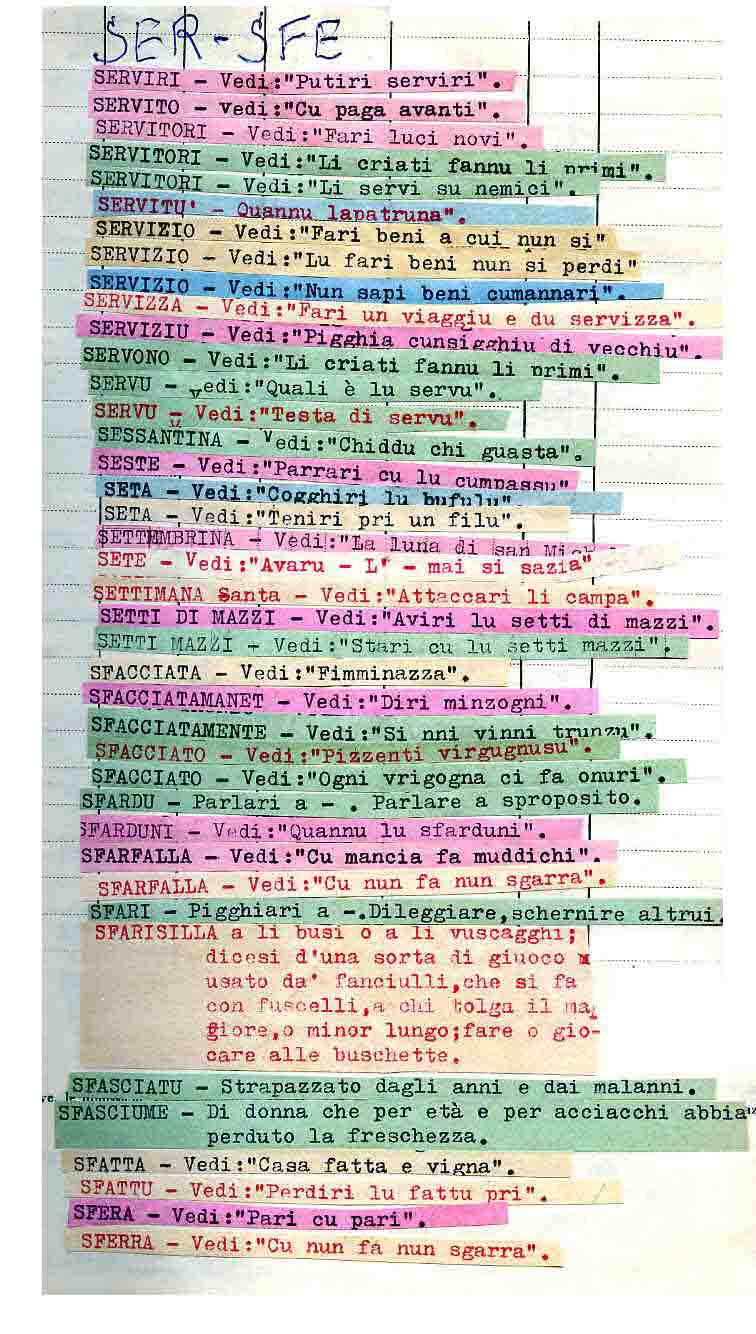 SER-SFE
SERVIRI - Vedi:"Putiri serviri".
SERVITO - vedi:"Cu paga avanti".
SERVITORI - Vedi:"Fari luci novi".
SERVITORI - Vedi:"Li criati fannu li primi".
SERVITORI - Vedi:"Li servi su nemici".
SERVITU' - Quannu lapatruna".
SERVIZIO - Vedi:"Fari beni a cui nun si"
SERVIZIO - Vedi:"Lu fari beni nun si perdi"
SERVIZIO - Vedi:"Nun sapi beni cumannari".
SERVIZZA - Vedi:"Fari un viaggiu e du servizza".
SERVIZIU - Vedi:"Pigghia cunsigghiu di vecchiu".
SERVONO - Vedi:"Li criati fannu li primi".
SERVU - vedi:"Quali è lu servu".
SERVU - Vedi:"Testa di servu".
SESSANTINA - Vedi:"Chiddu chi guasta".
SESTE - Vedi:"Parrari cu lu cumpassu"
SETA - Vedi:"Cogghiri lu bufulu"
SETA - Vedi:"Teniri pri un filu".
SETTEMBRINA - Vedi:"La luna di san
SETE - Vedi:"Avaru - L' - mai si sazia"
SETTIMANA Santa - Vedi:"Attaccari li campa".
SETTI DI MAZZI - Vedi:"Aviri lu setti di mazzi".
SETTI MAZZI - Vedi:"Stari cu lu setti mazzi".
SFACCIATA - Vedi:"Fimminazza".
SFACCIATAMANET - Vedi:"Diri minzogni".
SFACCIATAMENTE - Vedi:"Si nni vinni trunzu".
SFACCIATO - Vedi:"Pizzenti virgugnusu".
SFACCIATO - Vedi:"Ogni vrigogna ci fa onuri".
SFARDU - Parlari a - . Parlare a sproposito.
SFARDUNI - Vedi:"Quannu lu sfarduni".
SFARFALLA - Vedi:"Cu mancia fa muddichi".
SFARFALLA - Vedi:"Cu nun fa nun sgarra".
SFARI - Pigghiari a -.Dileggiare,schernire altrui
SFARISILLA a li busi o a li vuscagghi;
dicesi d'una sorta di giuoco
usato da' fanciulli,che si fa
con fuscelli,a chi tolga il mag
giore,o minor lungo;fare o gio-
care alle buschette.
SFASCIATU - Strapazzato dagli anni e dai malanni.
SFASCIUME - Di donna che per età e per acciacchi abbia
perduto la freschezza.
SFATTA - Vedi:"Casa fatta e vigna".
SFATTU - Vedi:"Perdiri lu fattu pri".
SFERA - Vedi:"Pari cu pari".
SFERRA - Vedi:"Cu nun fa nun sgarra".